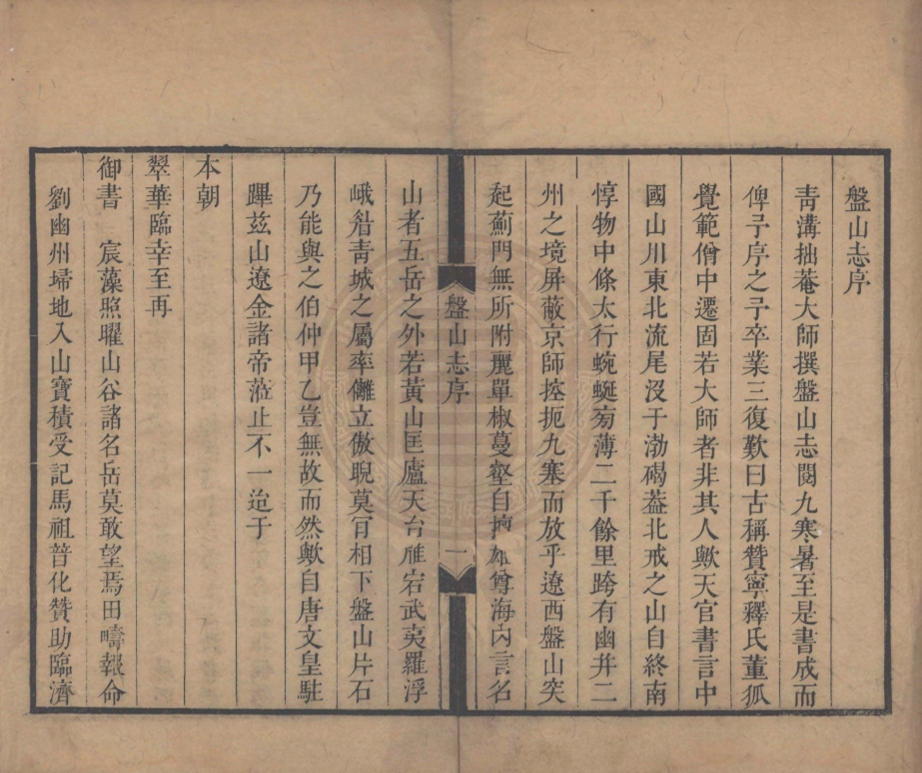 盤山志序
青溝拙菴大師撰盤山志閱九寒暑至是書成而
俾予序之予卒業三復歎曰古稱贊寧釋氏董狐
覺範僧中遷固若大師者非其人歟天官書言中
國山川東北流尾沒于渤碣葢北戒之山自終南
惇物中條太行蜿蜒旁薄二千餘里跨有幽幷二
州之境屏蔽京師控扼九塞而放乎遼西盤山突
起薊門無所附麗單椒蔓壑自擅雄尊海内言名
盤山志序
一
山者五岳之外若黃山匡廬天台雁宕武夷羅浮
峨眉靑城之屬率儺立傲睨莫肎相下盤山片石
乃能與之伯仲甲乙豈無故而然歟自唐文皇駐
蹕茲山遼金諸帝蒞止不一迨于
本朝
翠華臨幸至再
御書 宸藻照曜山谷諸名岳莫敢望焉田疇報命
劉幽州埽地入山寶積受記馬祖普化贊助臨濟